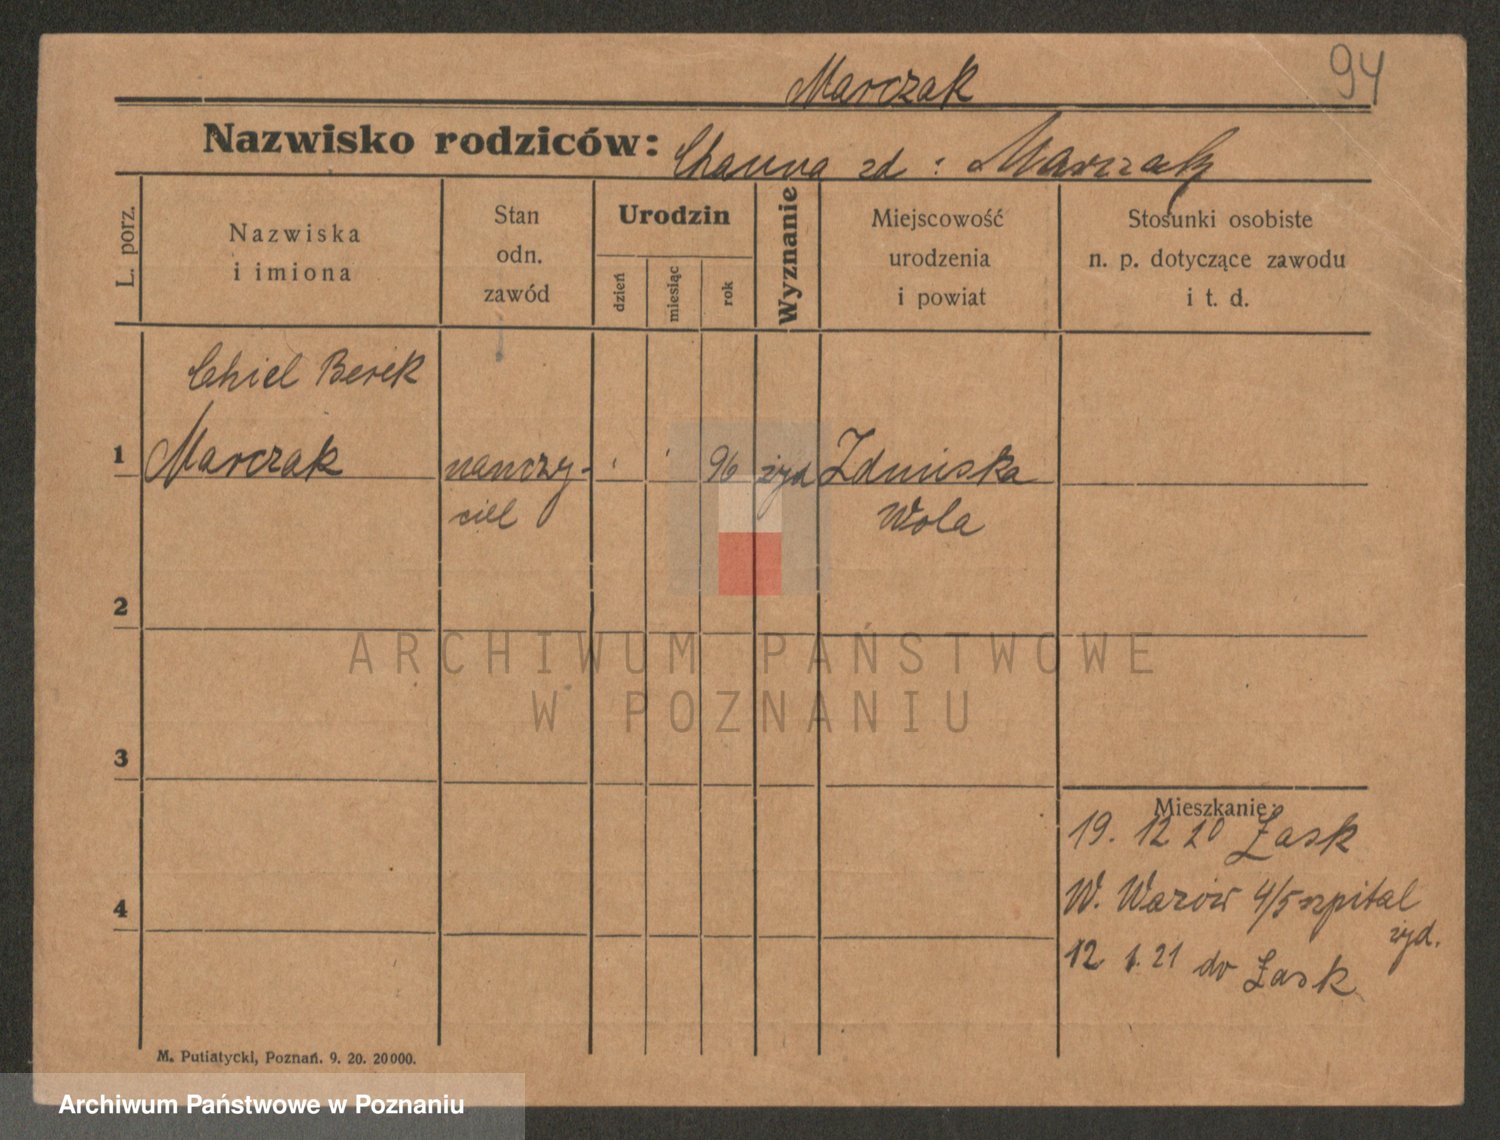 94
Marczak
Nazwisko rodziców: Channa zd: Marczak
L. porz.
Nazwiska
i imiona
Stan
odn.
zawód
Urodzin
dzień
miesiąc
rok
Wyznanie
Miejscowość
urodzenia
i powiat
Stosunki osobiste
n. p. dotyczące zawodu
i t. d.
Chiel Berek
1 Marczak nauczy- 96 żyd Zduńska
ciel Wola
2
3
4
Mieszkanie
19. 12 20 Łask
W. 4/5 szpital
żyd.
12. 1. 21 do Łask
M. Putiatycki, Poznań. 9. 20. 20000.
ARCHIWUM PAŃSTWOWE
W POZNANIU
Archiwum Państwowe w Poznaniu